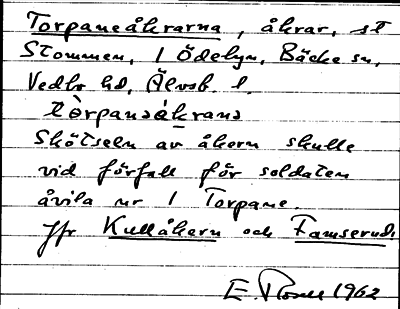 Torpaneåkrarna, åkrar, st
Stommen, 1 Ödelyn, Bäcke sn,
Vedbo hd, Älvsb. l.
Skötseln av åkern skulle
vid förfall för soldaten
åvila nr 1 Torpane.
Jfr Kullåkern och
E. 1962